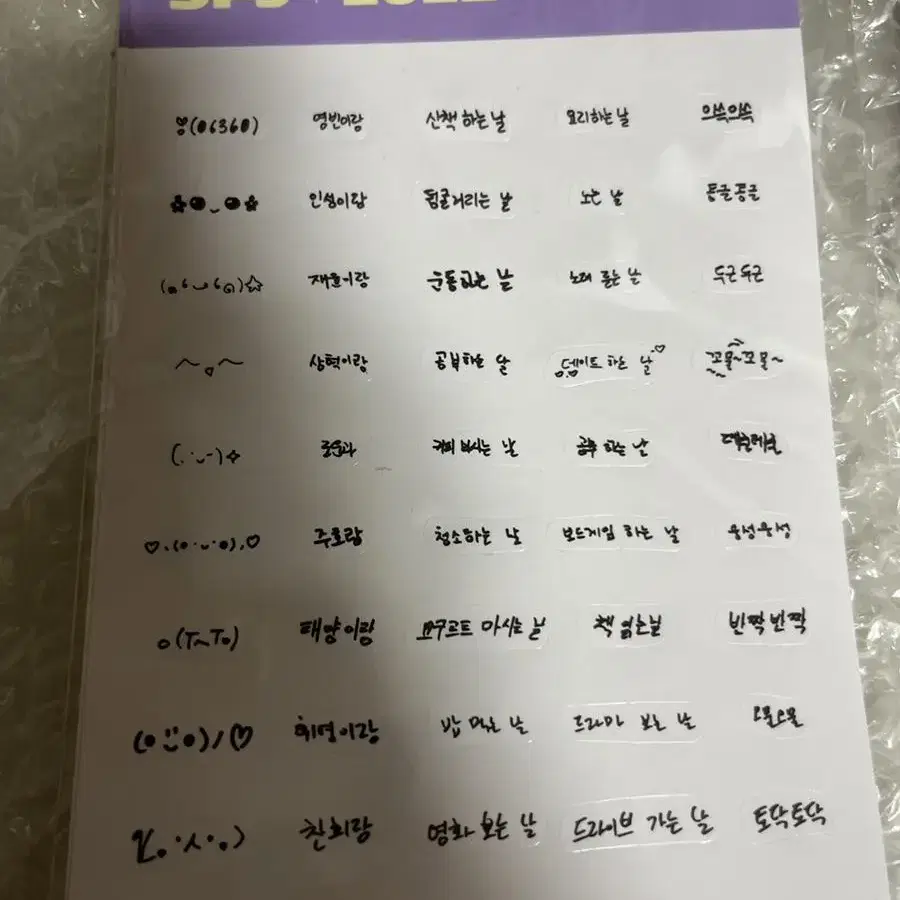 영빈이랑 산책 하는 날 요리하는 날 으쓱으쓱
인성이랑 뒹굴거리는 날 노는 날 동글동글
재윤이랑 운동하는 날 노래 듣는 날 두근두근
^ ^ 상혁이랑 공부하는 날 뎀이트 하는 날♡ 꼬물~꼬물~
(. ·ᴗ-)✧ 로운과 커피 마시는 날 공주 하는 날
♡.(• ·ᴗ· •).♡ 주호랑 청소하는 날 보드게임 하는 날 웅성웅성
o(T~To) 태양이랑 요구르트 마시는 날 책 읽는날 반짝반짝
휘영이랑 밥 먹는 날 드라마 보는 날
찬희랑 영화 보는 날 드라이브 가는 날 토닥토닥